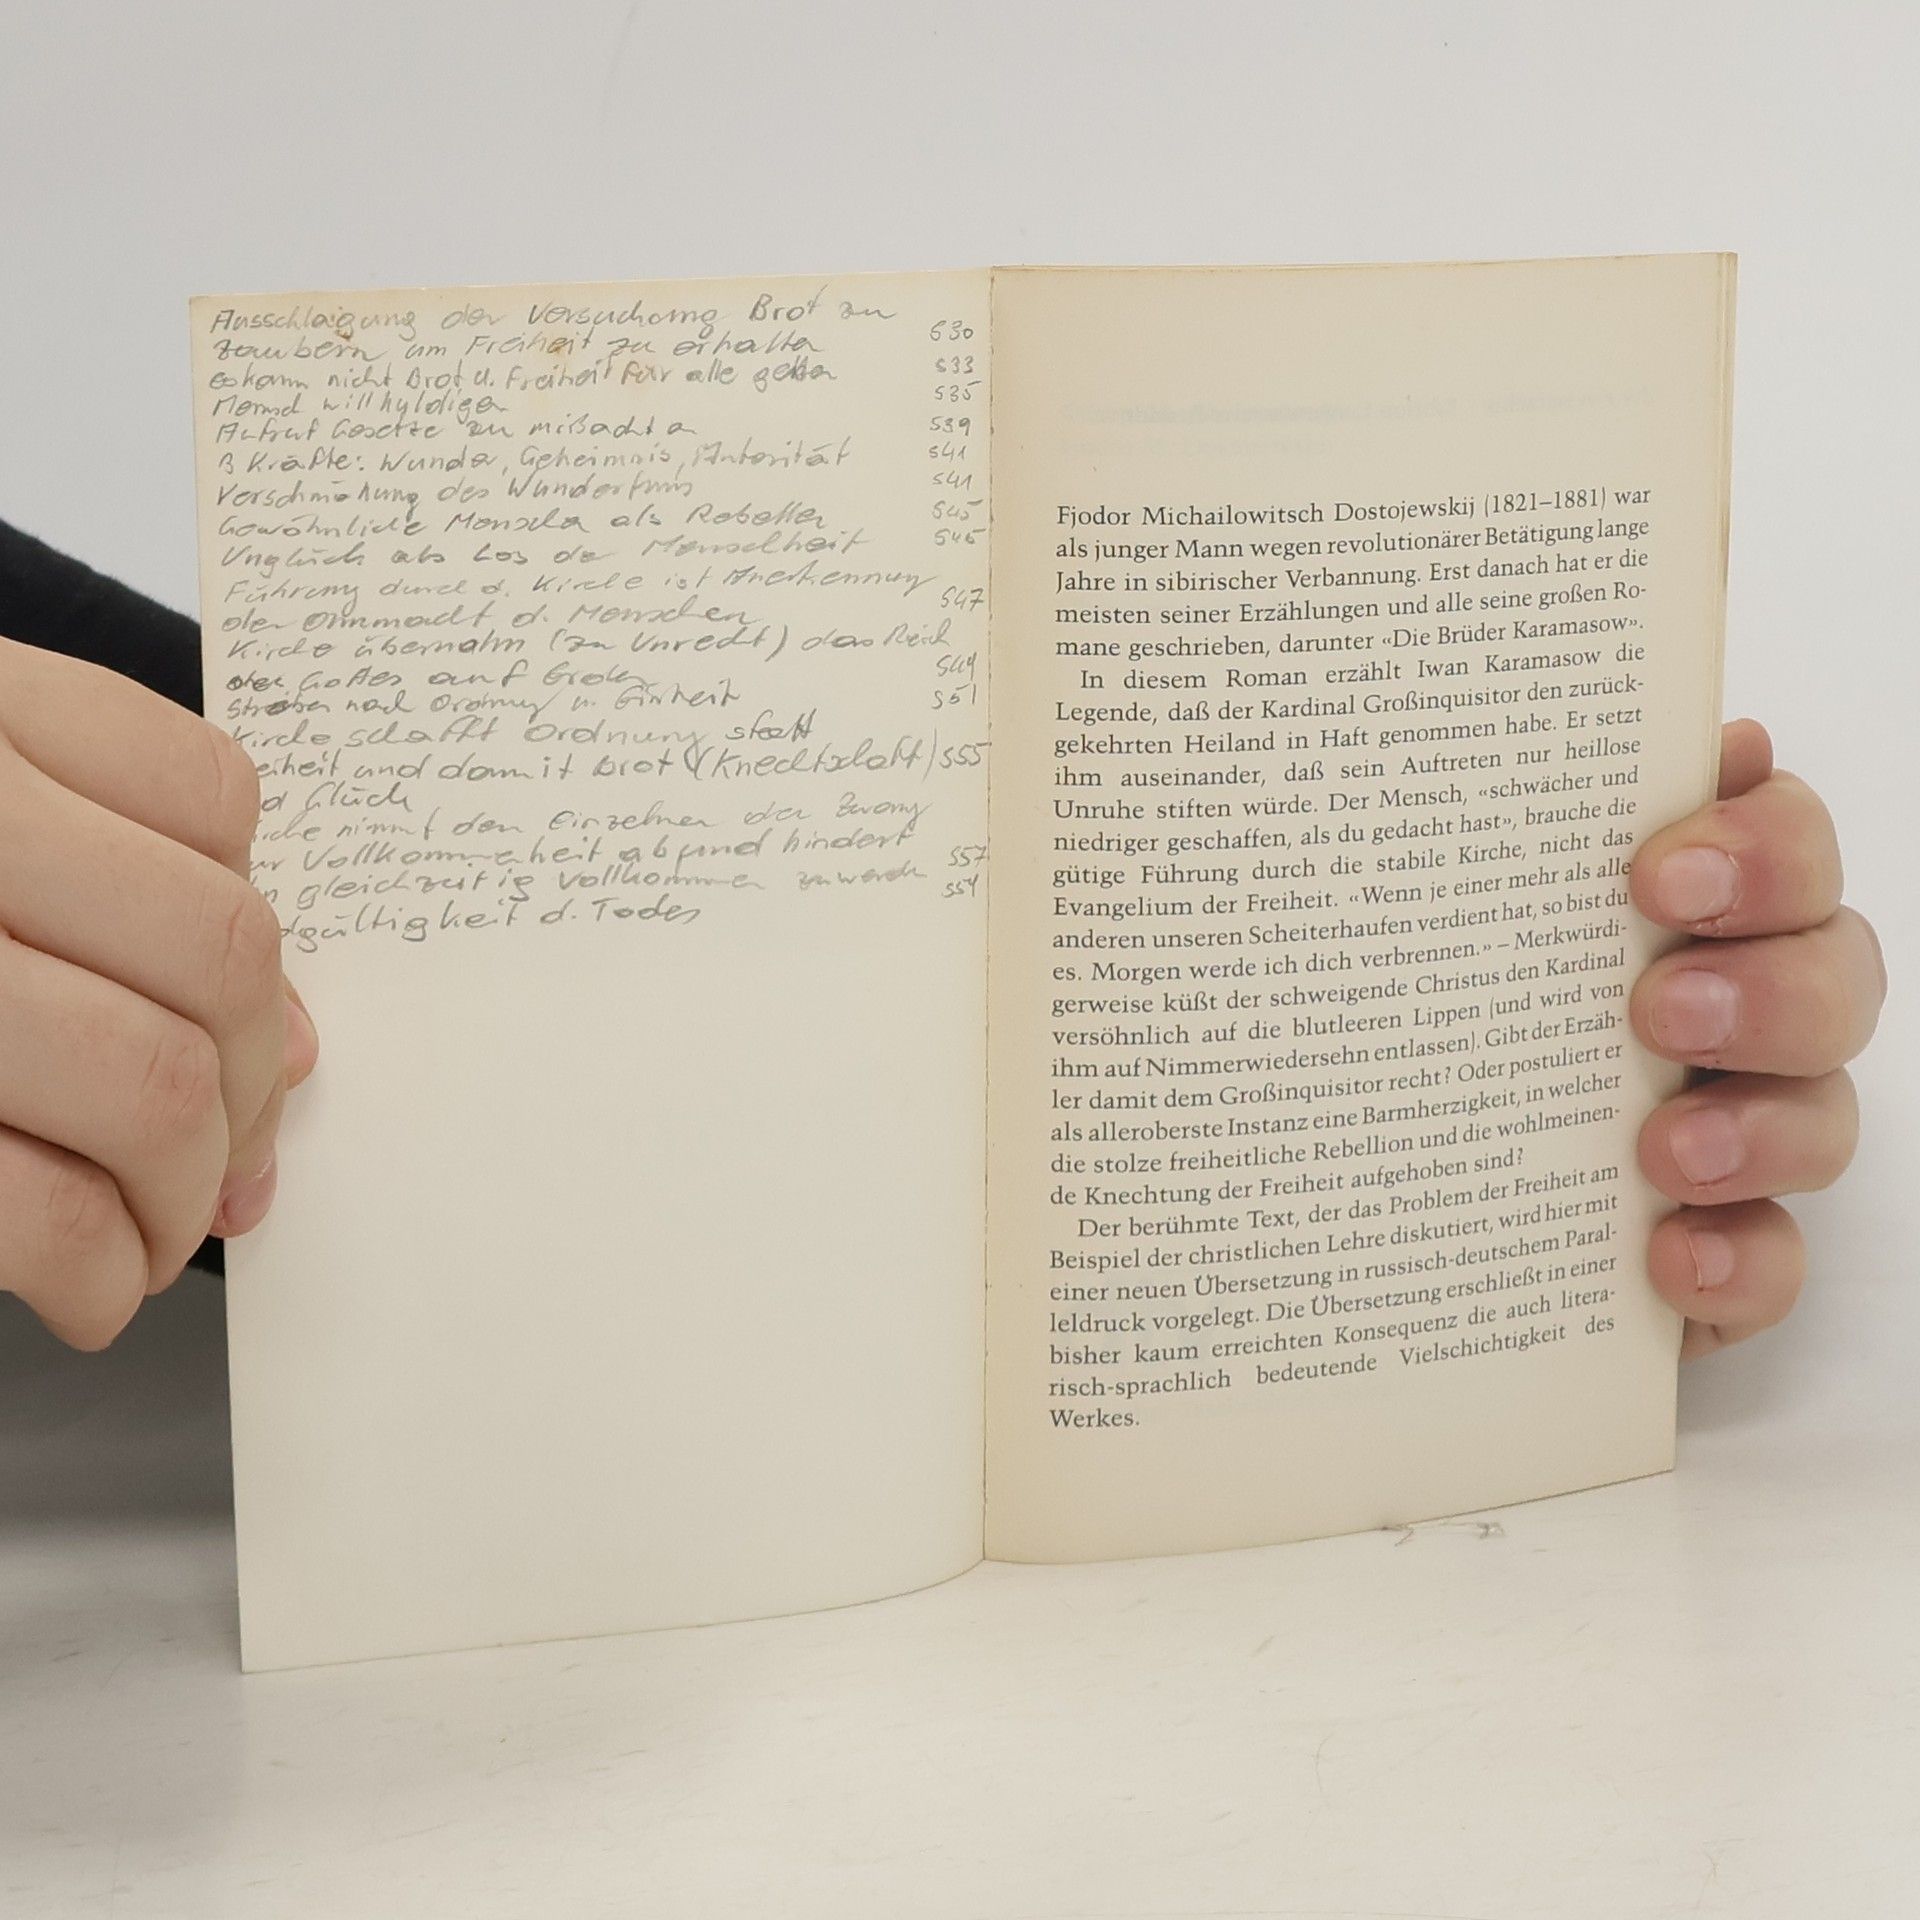 Ausschlagung der Versuchung Brot zu
zaubern, um Freiheit zu erhalten S30
es kann nicht Brot u. Freiheit für alle geben S33
Mensch will huldigen S35
Aufruf Gesetze zu mißachten S39
3 Kräfte: Wunder, Geheimnis, Autorität S41
Verschmähung des Wundertuns S41
Gewöhnliche Menschen als Rebellen S45
Unglück als Los der Menschheit S45
Führung durch d. Kirche ist Anerkennung
der Ohnmacht d. Menschen S47
Kirche übernahm (zu Unrecht) das Reich
Gottes auf Erden S49
Streben nach Ordnung u. Einheit S51
Kirche schafft Ordnung statt
eiheit und damit Brot (Knechtschaft) S55
d Glück
che nimmt den Einzelnen den Zwang
ur Vollkommenheit ab und hindert
n gleichzeitig vollkommen zu werden S57
dgültigkeit d. Todes S59
Fjodor Michailowitsch Dostojewskij (1821–1881) war
als junger Mann wegen revolutionärer Betätigung lange
Jahre in sibirischer Verbannung. Erst danach hat er die
meisten seiner Erzählungen und alle seine großen Ro-
mane geschrieben, darunter «Die Brüder Karamasow».
In diesem Roman erzählt Iwan Karamasow die
Legende, daß der Kardinal Großinquisitor den zurück-
gekehrten Heiland in Haft genommen habe. Er setzt
ihm auseinander, daß sein Auftreten nur heillose
Unruhe stiften würde. Der Mensch, «schwächer und
niedriger geschaffen, als du gedacht hast», brauche die
gütige Führung durch die stabile Kirche, nicht das
Evangelium der Freiheit. «Wenn je einer mehr als alle
anderen unseren Scheiterhaufen verdient hat, so bist du
es. Morgen werde ich dich verbrennen.» – Merkwürdi-
gerweise küßt der schweigende Christus den Kardinal
versöhnlich auf die blutleeren Lippen (und wird von
ihm auf Nimmerwiedersehn entlassen). Gibt der Erzäh-
ler damit dem Großinquisitor recht? Oder postuliert er
als alleroberste Instanz eine Barmherzigkeit, in welcher
die stolze freiheitliche Rebellion und die wohlmeinen-
de Knechtung der Freiheit aufgehoben sind?
Der berühmte Text, der das Problem der Freiheit am
Beispiel der christlichen Lehre diskutiert, wird hier mit
einer neuen Übersetzung in russisch-deutschem Paral-
leldruck vorgelegt. Die Übersetzung erschließt in einer
bisher kaum erreichten Konsequenz die auch litera-
risch-sprachlich bedeutende Vielschichtigkeit des
Werkes.